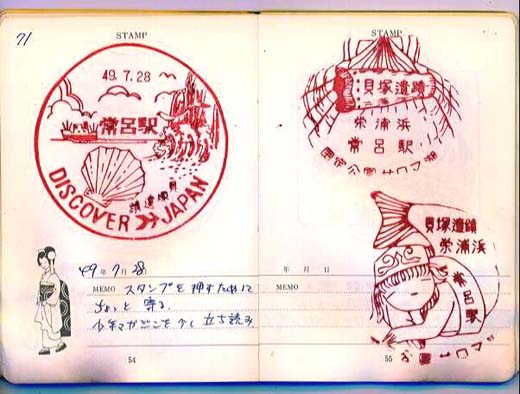 71
STAMP
49.7.28
常呂駅
貝塚遺蹟
DISCOVER JAPAN
49年7月28日
MEMO スタンプを押すために
ちょっと寄る。
少年マガジンを少し立ち読み
54
STAMP
貝塚遺蹟
栄浦浜
常呂駅
国定公園サロマ湖
貝塚遺蹟
栄浦浜
常呂駅
公園サロマ
年 月 日
MEMO
55